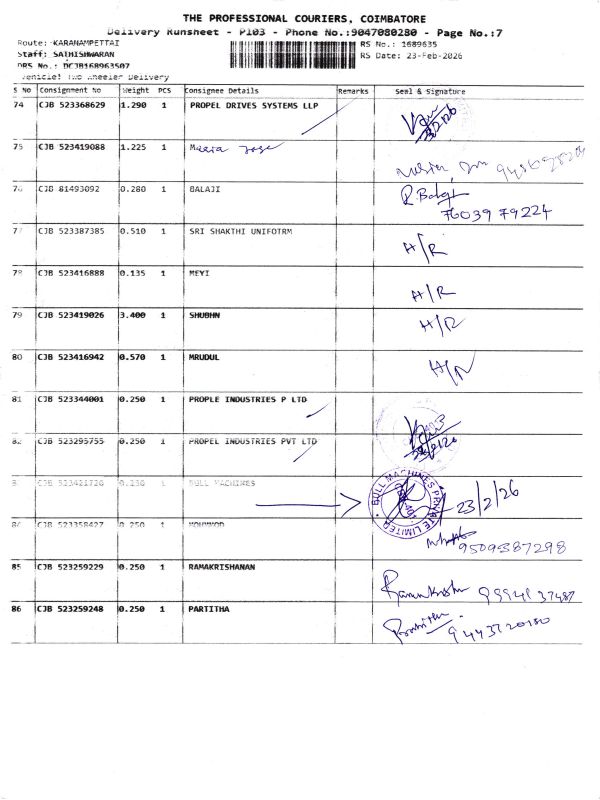 THE PROFESSIONAL COURIERS, COIMBATORE
Delivery Runsheet - P103 - Phone No.:9047080280 - Page No.:7
Route: KARANAMPETTAI
RS No.: 1689635
Staff: SATHISHWARAN
RS Date: 23-Feb-2026
DRS No.: DCJB168963507
Vehicle: Two Wheeler Delivery
S No Consignment No Weight PCS Consignee Details Remarks Seal & Signature
74 CJB 523368629 1.290 1 PROPEL DRIVES SYSTEMS LLP
75 CJB 523419088 1.225 1 Meera Jose
76 CJB 81493092 0.280 1 BALAJI R. Balaji
76039 79224
77 CJB 523387385 0.510 1 SRI SHAKTHI UNIFOTRM H/R
78 CJB 523416888 0.135 1 MEYI H/R
79 CJB 523419026 3.400 1 SHUBHN H/R
80 CJB 523416942 0.570 1 MRUDUL H/R
81 CJB 523344001 0.250 1 PROPLE INDUSTRIES P LTD
82 CJB 523295755 0.250 1 PROPEL INDUSTRIES PVT LTD
CJB 523421726 0.130 1 BULL MACHINES
BULL MACHINES PRIVATE LIMITED
23/2/26
84 CJB 523358427 0.250 1 MOHMMOD
9509387298
85 CJB 523259229 0.250 1 RAMAKRISHANAN Ramakrishn
86 CJB 523259248 0.250 1 PARTITHA
9443720180